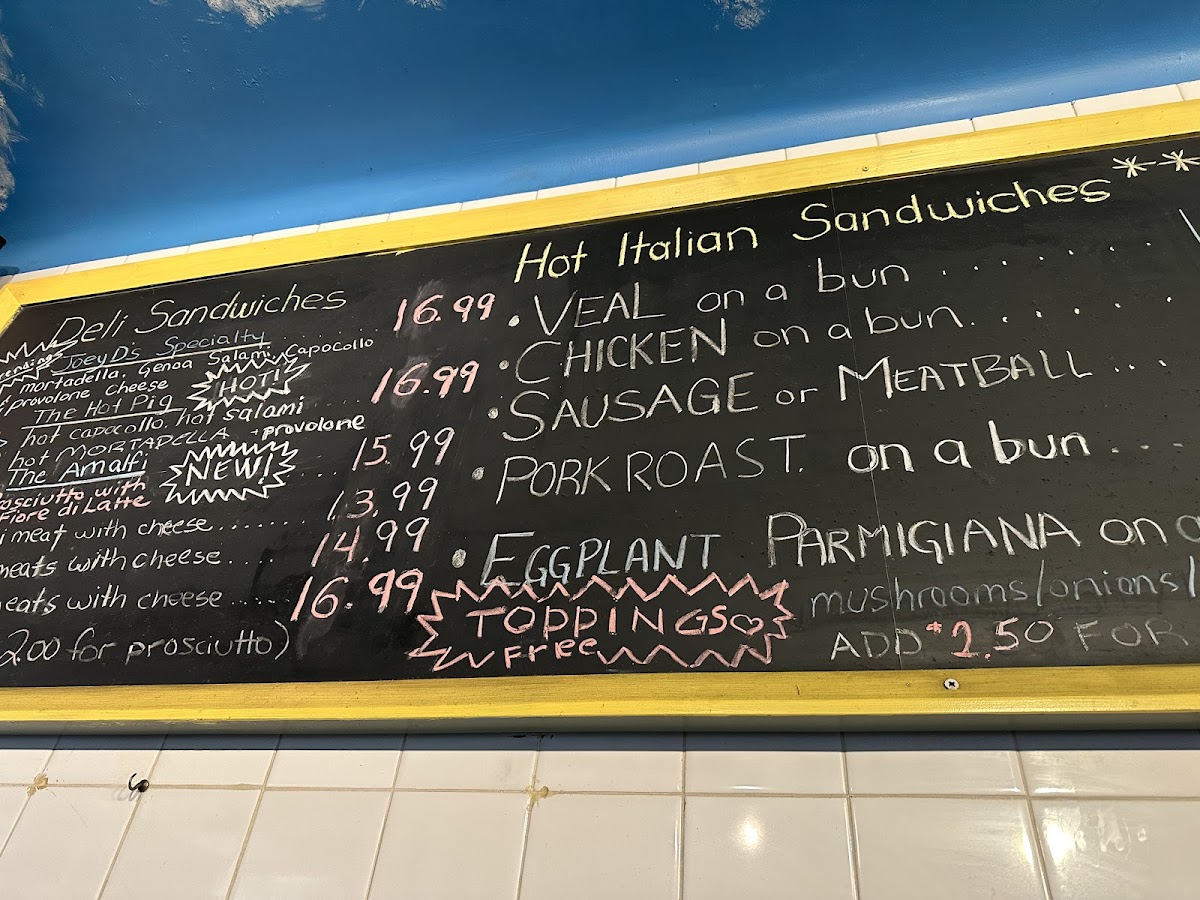 Deli Sandwiches
JoeyD's Specialty ........ 16.99
mortadella, Genoa Salami, Capocollo
provolone cheese
The Hot Pig HOT! ..... 16.99
hot capocollo, hot salami
hot MORTADELLA + provolone
The Amalfi NEW! ... 15.99
prosciutto with
Fiore di Latte
meat with cheese....... 13.99
meats with cheese .... 14.99
meats with cheese ..... 16.99
2.00 for prosciutto)
Hot Italian Sandwiches **
• VEAL on a bun . . . . . . .
• CHICKEN on a bun. . . . . .
• SAUSAGE or MEATBALL . . . .
• PORK ROAST. on a bun . . .
• EGGPLANT PARMIGIANA on
TOPPINGS
FREE
mushrooms/onions/
ADD $2.50 FOR